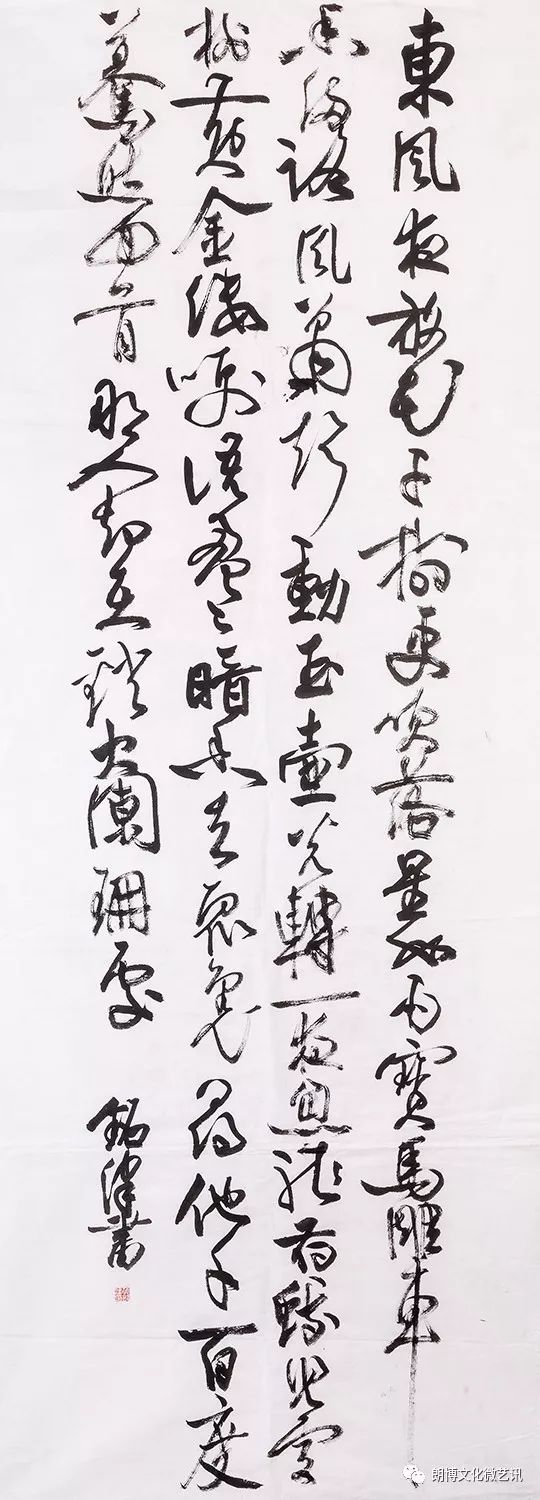 東風夜放花千樹更吹落星如雨寶馬雕車
香滿路鳳簫聲動玉壺光轉一夜魚龍舞蛾兒雪
柳黃金縷笑語盈々暗香去眾裏尋他千百度
驀然回首那人却在燈火闌珊處
書
朗博文化微艺讯